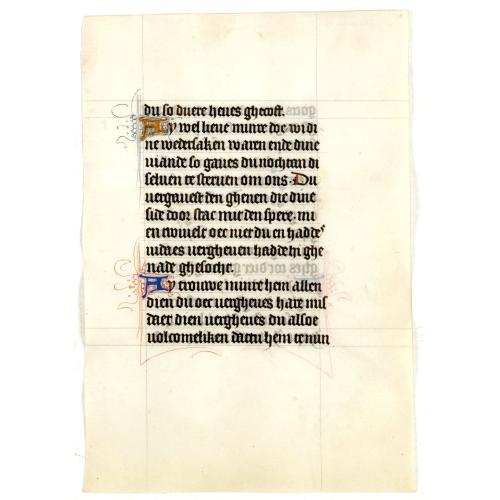 du so duere heues ghecoft.
Ay wel lieue minre doe wi di
ne wedersaken waren ende dine
uiande so gaues du nochtan di
seluen te steruen om ons. Du
uergauest den ghenen die dine
side door stac met den spere. mi
en twiuele oec niet du en hadde
iudaes uergheuen hadde hi ghe
nade ghesocht.
Ay trouwe minre hem allen
dien du oec uergheues hare mis
daet dien uergheues du alsoe
uolcomeliken dattu hem te min